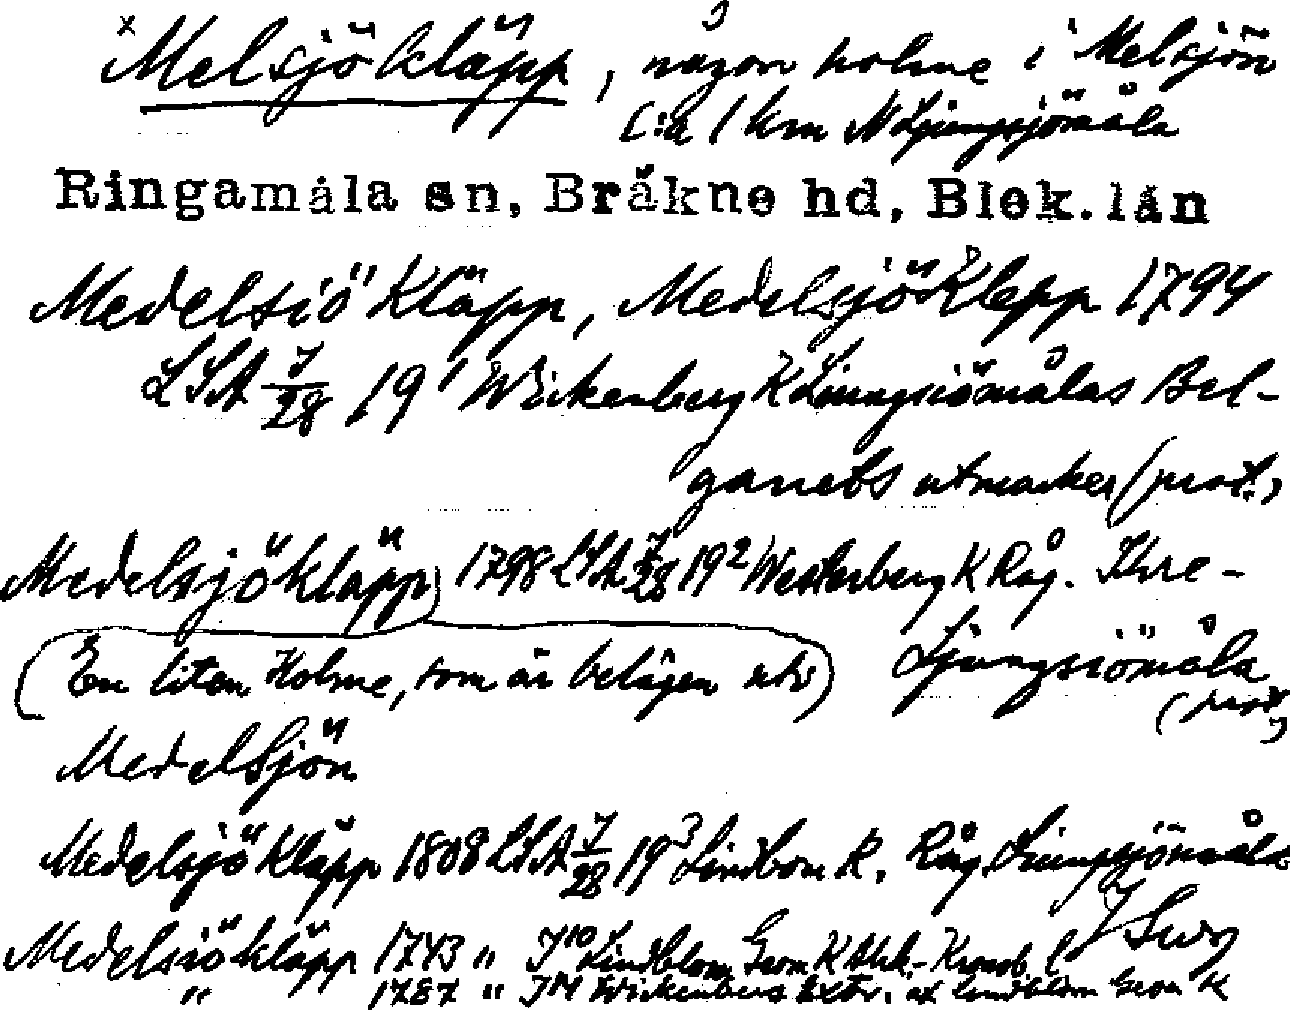 x Melsjökläpp, någon holme i Melsjön
C:a 1 km N Ljungsjömåla
Ringamåla sn, Bräkne hd, Blek. län
Medelsiö Kläpp, Medelsjö Klepp 1794
LSA 7/28 19¹ Wickenberg K Liungsiömålas Bel-
ganets utmarker (prot.)
Medelsjökläpp 1798 LSA 7/28 19² Westerberg K Råg. Ihre-
(En liten Holme, som är belägen uti) Ljungsiömåla
(prot.)
Medelsjön
Medelsjö Kläpp 1808 LSA 7/28 19³ Lindbom K. Råg. Liungsjömåla
Medelsiökläpp 1743 " J¹⁰ Lindblom Geom K
" 1787 " Wickenberg af Lindblom Geom K